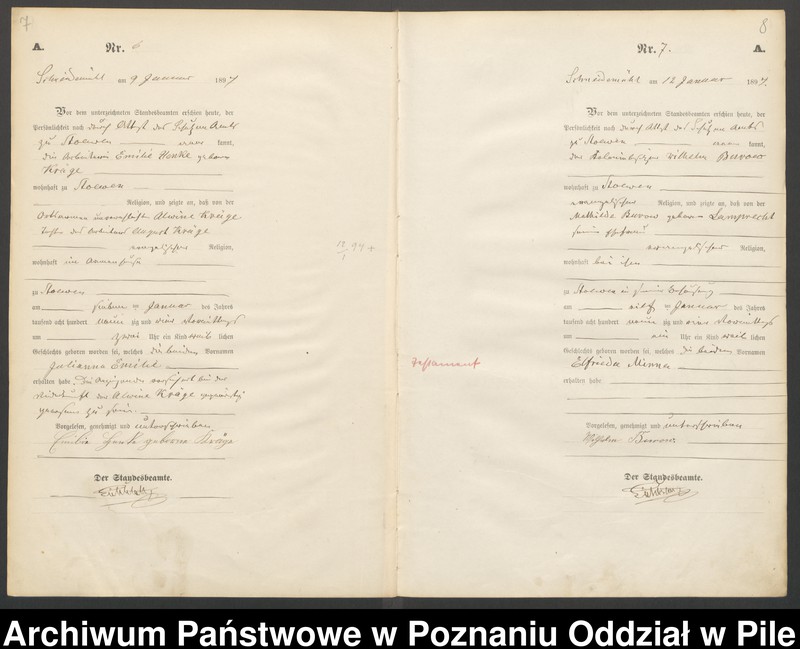 7
A.
Nr. 6
Schneidemühl am 9 Januar 1897
Vor dem unterzeichneten Standesbeamten erschien heute, der
Persönlichkeit nach durch Attest des Schulzen Amts
zu Stoewen kannt,
die Arbeiterin Emilie Henke geborne
Kräge
wohnhaft zu Stoewen
Religion, und zeigte an, daß von der
Ortsarmen Alwine Kräge
Tochter des Arbeiters August Kräge
evangelischer Religion,
wohnhaft im Armenhause
zu Stoewen
am sieben ten Januar des Jahres
tausend acht hundert neun zig und Vormittags
um zwei Uhr ein Kind weib lichen
Geschlechts geboren worden sei, welches die beiden Vornamen
Julianna Emilie
erhalten habe. Die Anzeigende daß sie bei der
Niederkunft der Alwine Kräge gegenwärtig
gewesen zu sein.
Vorgelesen, genehmigt und unterschrieben
Emilie Henke geborne Kräge
Der Standesbeamte.
8
Nr. 7.
A.
Schneidemühl am 12 Januar 1897.
Vor dem unterzeichneten Standesbeamten erschien heute, der
Persönlichkeit nach durch Attest des Schulzen Amts
zu Stoewen kannt,
der Wilhelm Burow
wohnhaft zu Stoewen
evangelischer Religion, und zeigte an, daß von der
Mathilde Burow geborne Lamprecht
seiner Ehefrau
evangelischer Religion,
wohnhaft bei ihm
zu Stoewen in seiner Behausung
am elf ten Januar des Jahres
tausend acht hundert neun zig und Vormittags
um ein Uhr ein Kind weib lichen
Geschlechts geboren worden sei, welches die beiden Vornamen
Elfrieda Minna
erhalten habe
Vorgelesen, genehmigt und unterschrieben
Wilhelm Burow.
Der Standesbeamte.
Testament
Archiwum Państwowe w Poznaniu Oddział w Pile